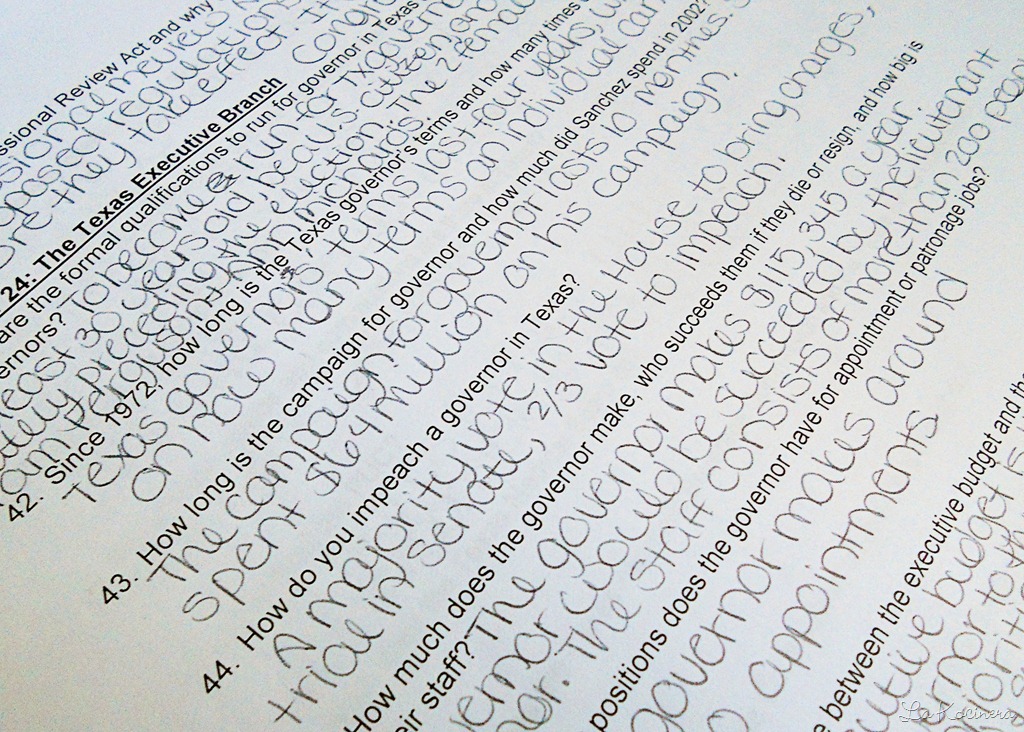 ssional Review Act and why
sional meviews n
oposed regulations
ore they take effect. It
Congre
24: The Texas Executive Branch
are the formal qualifications to run for governor in Texas
ernors? To become run for TX govern
least 30 years old, be a U.S citizen, and
preceding the election. The 2 fema
Ferguson, Ann Richards
42. Since 1972, how long is the Texas governor's terms and how many times
Texas governors terms last four years w
on how many terms an individual can
43. How long is the campaign for governor and how much did Sanchez spend in 2002?
The campaign for governor lasts 10 months. S
spent $64 million on his campaign.
44. How do you impeach a governor in Texas?
A majority vote in the House to bring charges,
trial in Senate, 2/3 vote to impeach.
How much does the governor make, who succeeds them if they die or resign, and how big is
eir staff? The governor makes $115,345 a year.
vernor would be succeeded by the lieutenant
nor. The staff consists of more than 200 peopl
positions does the governor have for appointment or patronage jobs?
governor makes around
0 appointments
e between the executive budget and th
cutive budget is
ernor to th
iorit
La Kocinera